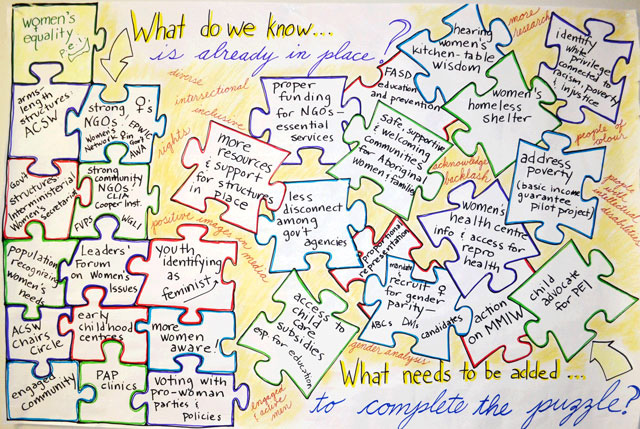 women's
equality
P.E.I.
What do we know...
is already in place?
arms
length
structures
ACSW
strong ♀'s
NGOs
EPWIC
Women's
Network
♀ in
Gov't
AWA
Gov't
structures
Interministerial
Women's
Secretariat
strong
community
NGOs
CLIA
Cooper Inst.
FVPS
WGLI
population
recognizing
women's
needs
Leaders'
Forum
on Women's
Issues
youth
identifying
as
feminist
ACSW
Chairs
Circle
early
childhood
centres
more
women
aware!
engaged
community
PAP
clinics
voting with
pro-woman
parties &
policies
diverse
intersectional
inclusive
rights
positive images in media
more
resources
& support
for structures
in place
proper
funding
for NGOs-
essential
services
less
disconnect
among
gov't
agencies
FASD
education
and prevention
safe, supportive
& welcoming
communities
for
Aboriginal
women & families
hearing
women's
kitchen-table
wisdom
more
research
women's
homeless
shelter
identify
white
privilege
connected to
racism, poverty
& injustice
people of
colour
acknowledge
backlash
address
poverty
(basic income
guarantee
pilot project)
people
disabilities
proportional
representation
women's
health centre
info & access for
repro
health
mandate
recruit ♀
for gender
parity-
ABCs
DMs
candidates
action
on MMIW
child
advocate
for PEI
access to
child
care
subsidies
esp for education
gender analysis
engaged
& active
men
What needs to be added...
to complete the puzzle?